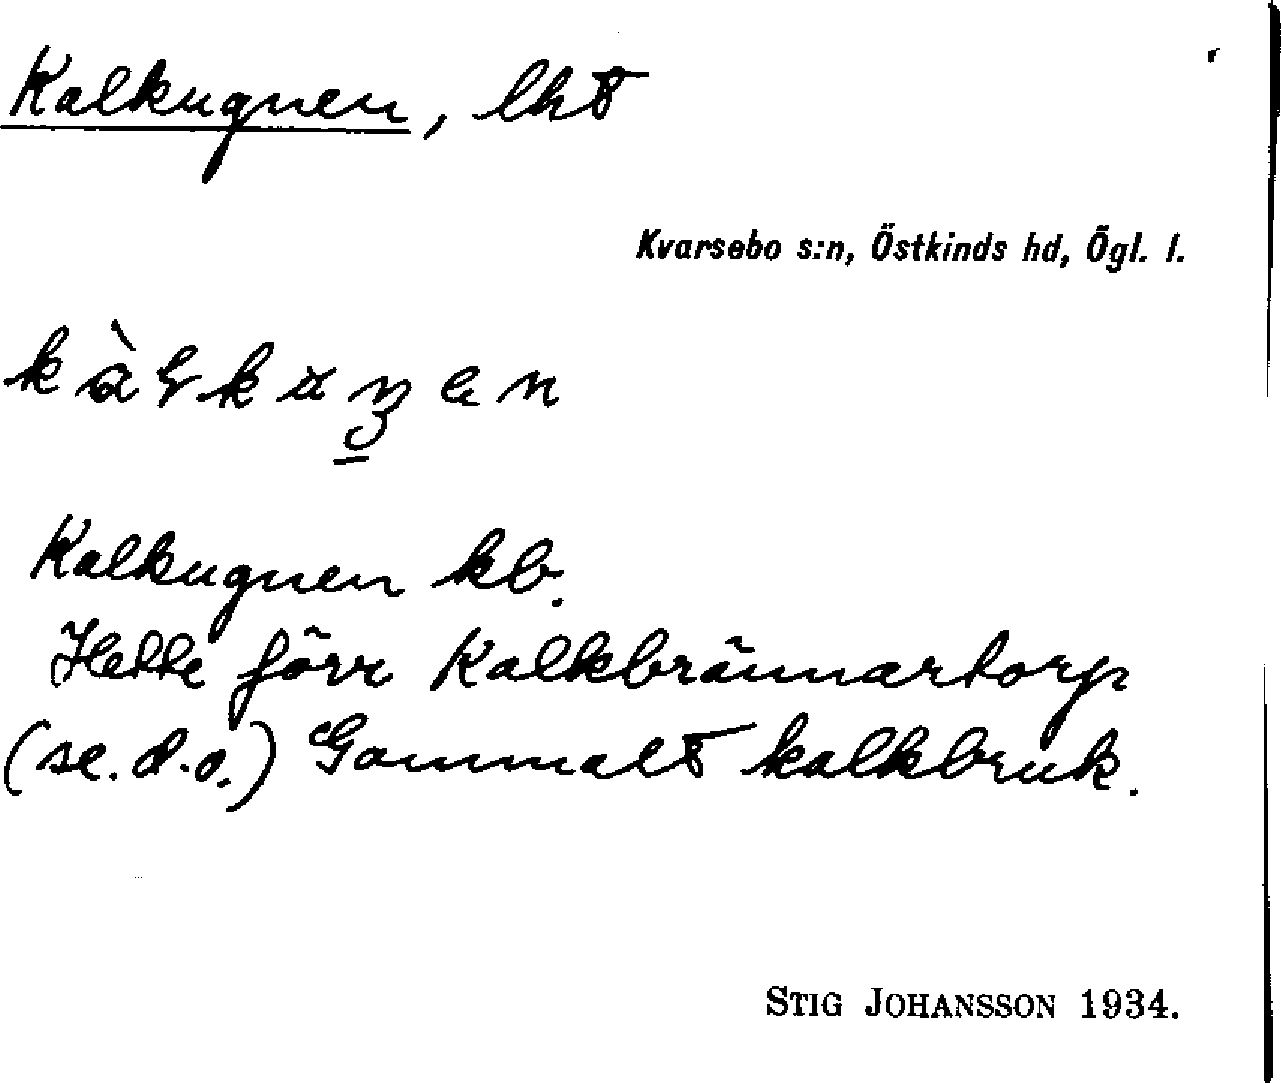 Kalkugnen, lht
Kvarsebo s:n, Östkinds hd, Ögl. l.
Kalkugnen kb.
Hette förr Kalkbrännartorp
(se.d.o.) Gammalt kalkbruk.
STIG JOHANSSON 1934.